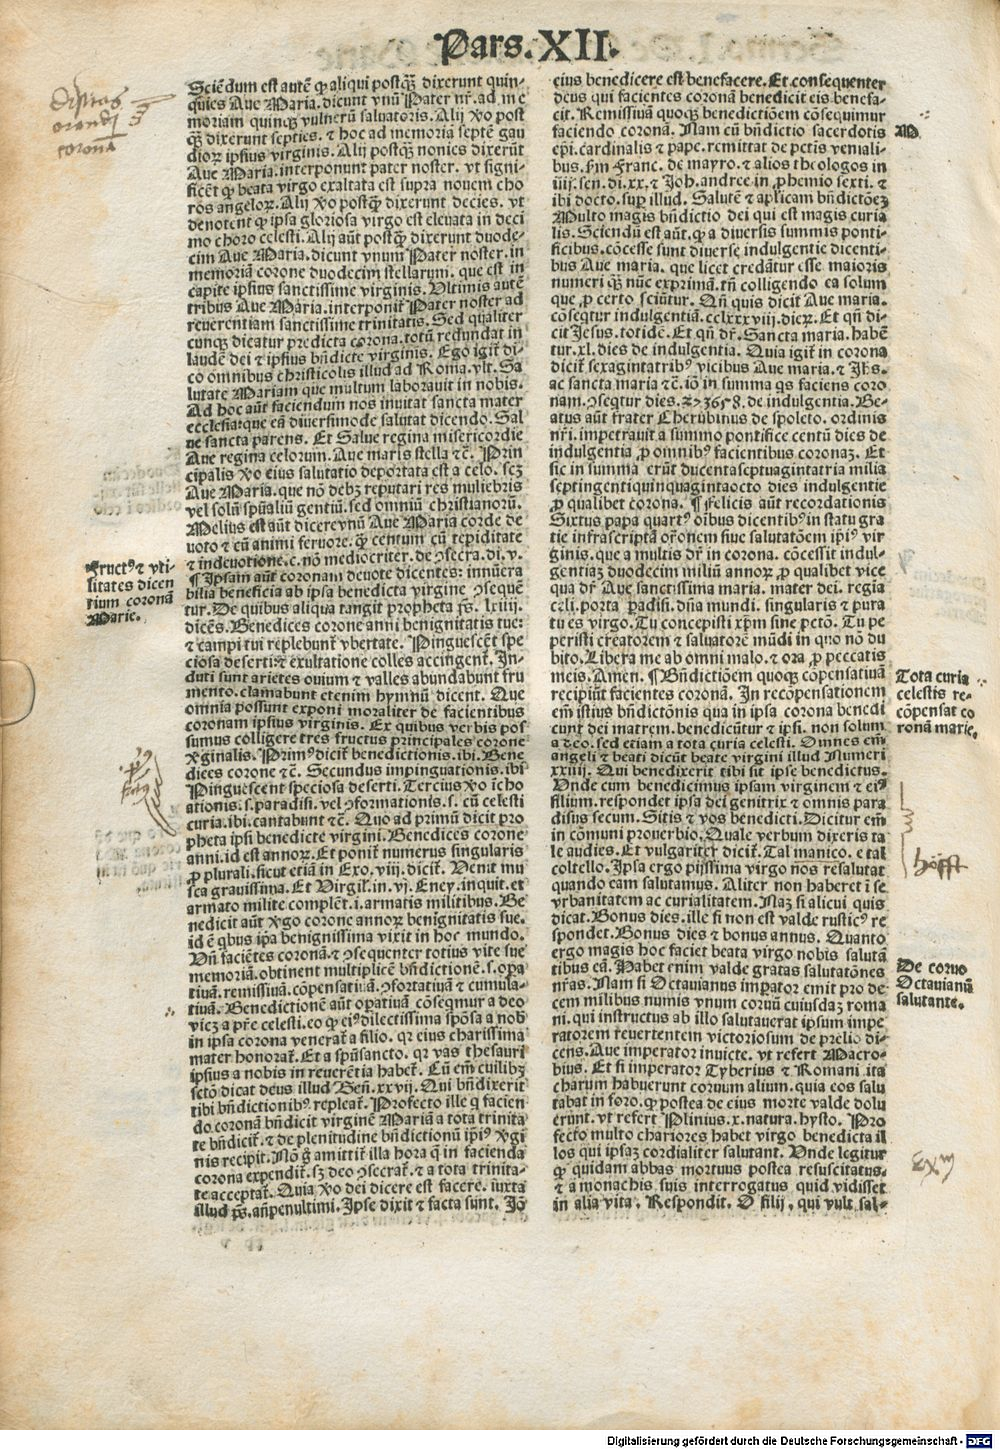 Pars.XII.
Sciēdum est autē ꝙ aliqui postq̄ȝ dixerunt quin-
quies Aue Maria.dicunt vnū Pater nr̄.ad me
moriam quinqȝ vulnerū saluatoris.Alij ꝟo post
q̄ȝ dixerunt septies.⁊ hoc ad memoria septē gau
dioꝝ ipsius virginis.Alij postq̄ȝ nonies dixerūt
Aue Maria.interponunt pater noster. vt signi-
ficēt ꝙ beata virgo exaltata est supra nouem cho
ros angeloꝝ.Alij ꝟo postq̄ȝ dixerunt decies. vt
denotent ꝙ ipsa gloriosa virgo est eleuata in deci
mo choro celesti.Alij aūt postq̄ȝ dixerunt duode-
cim Aue Maria.dicunt vnum Pater noster.in
memoriā corone duodecim stellarum. que est in
capite ipsius sanctissime virginis.Vltimis autē
tribus Aue Maria.interponit᷑ Pater noster ad
reuerentiam sanctissime trinitatis. Sed qualiter
cunqȝ dicatur predicta corona.totū redundat in
laudē dei ⁊ ipsius bn̄dicte virginis. Ego igit᷑ di-
co omnibus christicolis illud ad Roma.vlt. Sa
lutate Mariam que multum laborauit in nobis.
Ad hoc aūt faciendum nos inuitat sancta mater
ecclesia:que eā diuersimode salutat dicendo. Sal
ue sancta parens. Et Salue regina misericordie
Aue regina celorum. Aue maris stella ⁊c̄. Prin
cipalis ꝟo eius salutatio deportata est a celo. scȝ
Aue Maria.que nō debȝ reputari res muliebris
vel solū spūaliū gentiū.sed omniū christianorū.
Melius est aūt dicere vnū Aue Maria corde de
uoto ⁊ cū animi feruore.ꝙ centum cū tepiditate
⁊ indeuotione.c.nō mediocriter.de ꝯsecra.di.v.
¶ Ipsam aūt coronam deuote dicentes: innūera
bilia beneficia ab ipsa benedicta virgine ꝯsequē
tur.De quibus aliqua tangit propheta ps̄. lxiiij.
dicēs. Benedices corone anni benignitatis tue:
⁊ campi tui replebunt᷑ vbertate. Pinguescēt spe
ciosa deserti:⁊ exultatione colles accingent᷑. In-
duti sunt arietes ouium ⁊ valles abundabunt fru
mento.clamabunt etenim hymnū dicent. Que
omnia possunt exponi moraliter de facientibus
coronam ipsius virginis. Ex quibus verbis pos
sumus colligere tres fructus principales corone
ꝟginalis. Primꝰ dicit᷑ benedictionis.ibi. Bene
dices corone ⁊c̄. Secundus impinguationis.ibi
Pinguescent speciosa deserti.Tercius ꝟo īcho
ationis.s.paradisi.vel ꝯformationis.s. cū celesti
curia.ibi.cantabunt ⁊c̄. Quo ad primū dicit pro
pheta ipsi benedicte virgini. Benedices corone
anni.id est annoꝝ.Et ponit᷑ numerus singularis
ꝓ plurali.sicut etiā in Exo.viij.dicit᷑. Venit mu
sca grauissima. Et Virgil.in.vj.Eney.inquit.et
armato milite complēt.i.armatis militibus. Be
nedicit aūt ꝟgo corone annoꝝ benignitatis sue.
id ē qbus ip̄a benignissima vixit in hoc mundo.
Vn̄ faciētes coronā.⁊ ꝯsequenter totius vite sue
memoriā.obtinent multiplicē bn̄dictionē.s.opta
tiuā.remissiuā.cōpensatiuā.ꝯfortatiuā ⁊ cumula-
tiuā. Benedictionē aūt optatiuā cōseqmur a deo
vicȝ a pr̄e celesti.eo ꝙ eiꝰ dilectissima spōsa a nob̄
in ipsa corona venerat᷑ a filio. qꝛ eius charissima
mater honorat᷑. Et a spūsancto. qꝛ vas thesauri
ipsius a nobis in reuerētia habet᷑. Cū em̄ cuilibȝ
sctō dicat deus illud Gen̄.xxvij. Qui bn̄dixerit
tibi bn̄dictionibꝰ repleat᷑. Profecto ille q facien
do coronā bn̄dicit virginē Mariā a tota trinita
te bn̄dicit᷑.⁊ de plenitudine bn̄dictionū ip̄iꝰ ꝟgi
nis recipit. Nō g̃ amittit᷑ illa hora q̄ in facienda
corona expendit᷑.sȝ deo ꝯsecrat᷑.⁊ a tota trinita-
te acceptat᷑. Quia ꝟo dei dicere est facere. iuxta
illud ps̄.an̄penultimi. Ipse dixit ⁊ facta sunt. Iō
eius benedicere est benefacere. Et consequenter
deus qui facientes coronā benedicit eis benefa-
cit. Remissiuā quoqȝ benedictiōem cōsequimur
faciendo coronā. Nam cū bn̄dictio sacerdotis
ep̄i.cardinalis ⁊ pape.remittat de pctīs veniali-
bus.s̄m Franc. de mayro.⁊ alios theologos in
iiij.sen.di.xx.⁊ Joh.andree in ꝓhemio sexti. ⁊
ibi docto.suꝑ illud. Salutē ⁊ aplicam bn̄dictōeȝ
Multo magis bn̄dictio dei qui est magis curia
lis. Sciendū est aūt.ꝙ a diuersis summis ponti-
ficibus.cōcesse sunt diuerse indulgentie dicenti-
bus Aue maria. que licet credātur esse maioris
numeri qȝ nūc exprimā.tn̄ colligendo ea solum
que ꝓ certo sciūtur. Qn̄ quis dicit Aue maria.
cōseqtur indulgentiā.cclxxxviij.dieꝝ. Et qn̄ di-
cit Jesus.totidē. Et qn̄ dr̄. Sancta maria.habē
tur.xl. dies de indulgentia. Quia igit᷑ in corona
dicit᷑ sexagintatribꝰ vicibus Aue maria.⁊ Jhs.
ac sancta maria ⁊c̄.iō in summa qs faciens coro
nam.ꝯseqtur dies.273658.de indulgentia.Be-
atus aūt frater Cherubinus de spoleto. ordinis
nr̄i. impetrauit a summo pontifice centū dies de
indulgentia ꝓ omnibꝰ facientibus coronaȝ. Et
sic in summa erūt ducentaseptuagintatria milia
septingentiquinquagintaocto dies indulgentie
ꝓ qualibet corona. ¶ Felicis aūt recordationis
Sixtus papa quartꝰ oībus dicentibꝰ in statu gra
tie infrascriptā or̄onem siue salutatōem ip̄iꝰ vir
ginis.que a multis dr̄ in corona. cōcessit indul-
gentiaȝ duodecim miliū annoꝝ ꝓ qualibet vice
qua dr̄. Aue sanctissima maria. mater dei. regīa
celi.porta ꝑadisi.dn̄a mundi. singularis ⁊ pura
tu es virgo.Tu concepisti xp̄m sine pctō. Tu pe
peristi creatorem ⁊ saluatorē mūdi in quo nō du
bito.Libera me ab omni malo.⁊ ora ꝓ peccatis
meis.Amen. ¶ Bn̄dictiōem quoqȝ cōpensatiuā
recipiūt facientes coronā. In recōpensationem
em̄ istius bn̄dictōnis qua in ipsa corona benedi
cunt dei matrem.benedicūtur ⁊ ipsi. non solum
a deo.sed etiam a tota curia celesti. Omnes em̄
angeli ⁊ beati dicūt beate virgini illud Numeri
xxiiij. Qui benedixerit tibi sit ipse benedictus.
Unde cum benedicimus ipsam virginem ⁊ eiꝰ
filium.respondet ipsa dei genitrix ⁊ omnis para
disus secum.Sitis ⁊ vos benedicti.Dicitur em̄
in cōmuni prouerbio.Quale verbum dixeris ta
le audies.Et vulgariter dicit᷑.Tal manico.e tal
coltello. Ipsa ergo pijssima virgo nos resalutat
quando eam salutamus. Aliter non haberet ī se
vrbanitatem ac curialitatem.Naȝ si alicui quis
dicat.Bonus dies.ille si non est valde rusticꝰ re
spondet.Bonus dies ⁊ bonus annus. Quanto
ergo magis hoc faciet beata virgo nobis salutā
tibus eā. Habet enim valde gratas salutatōnes
nr̄as.Nam si Octauianus imꝑator emit pro de
cem milibus numis vnum coruū cuiusdaȝ roma
ni.qui instructus ab illo salutauerat ipsum impe
ratorem reuertentem victoriosum de prelio di-
cens.Aue imperator inuicte. vt refert Macro-
bius. Et si imperator Tyberius ⁊ Romani ita
charum habuerunt coruum alium.quia eos salu
tabat in foro.ꝙ postea de eius morte valde dolu
erunt.vt refert Plinius.x.natura.hysto. Pro
fecto multo chariores habet virgo benedicta il
los qui ipsaȝ cordialiter salutant. Unde legitur
ꝙ quidam abbas mortuus postea resuscitatus.
⁊ a monachis suis interrogatus quid vidisset
in alia vita. Respondit. O filij, qui vult sal-
orandi
corona
Fructꝰ ⁊ vti-
litates dicen
tium coronā
Marie.
M.
Tota curia
celestis re-
cōpensat co
ronā marie.
De coruo
Octauianū
salutante.
Digitalisierung gefördert durch die Deutsche Forschungsgemeinschaft - DFG